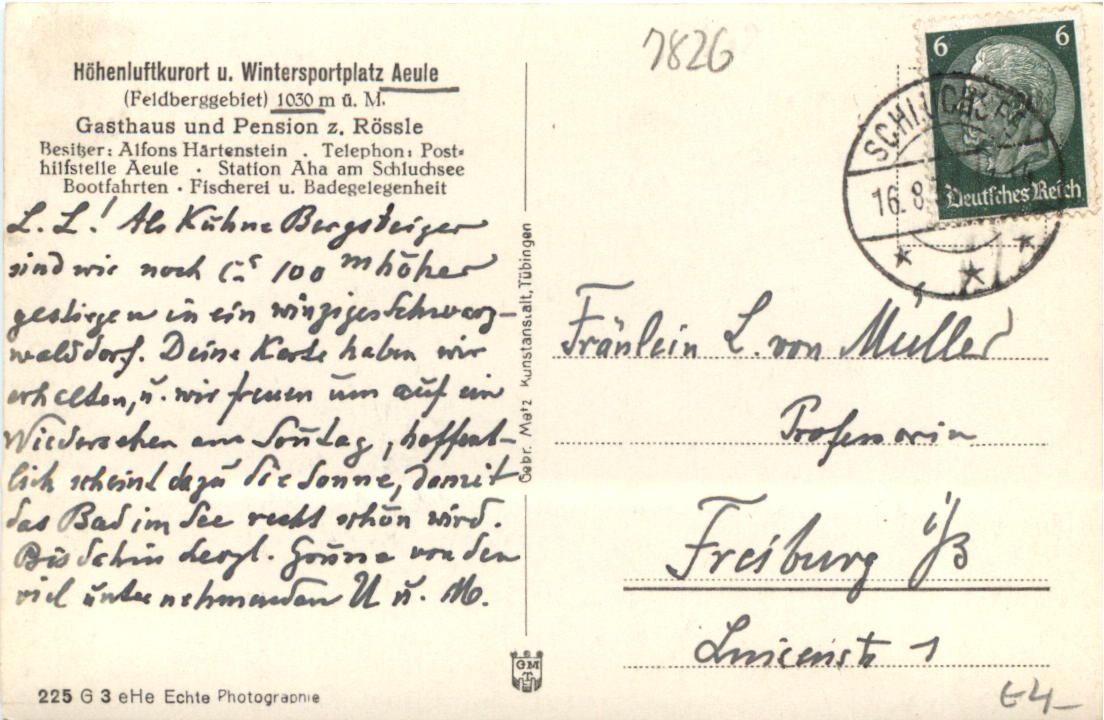 Höhenluftkurort u. Wintersportplatz Aeule
(Feldberggebiet) 1030 m ü. M.
Gasthaus und Pension z. Rössle
Besitzer: Alfons Härtenstein . Telephon: Post-
hilfstelle Aeule · Station Aha am Schluchsee
Bootfahrten · Fischerei u. Badegelegenheit
L. L.! Als Kühne Bergsteiger
sind wir noch ca 100 m höher
gestiegen in ein winziges Schwarz-
walddorf. Deine Karte haben wir
erhalten, u. wir freuen uns auf ein
Wiedersehen am Sontag, hoffent-
lich scheint dazu die Sonne, damit
das Bad im See recht schön wird.
Bis dahin herzl. Grüsse von den
viel unternehmenden U u. M.
225 G 3 eHe Echte Photographie
Gebr. Metz Kunstanstalt, Tübingen
GM
T
7826
6 6
Deutsches Reich
SCHLUCHSEE
16.8.
Fräulein L. von Müller
Professorin
Freiburg i/B
Luisenstr 1